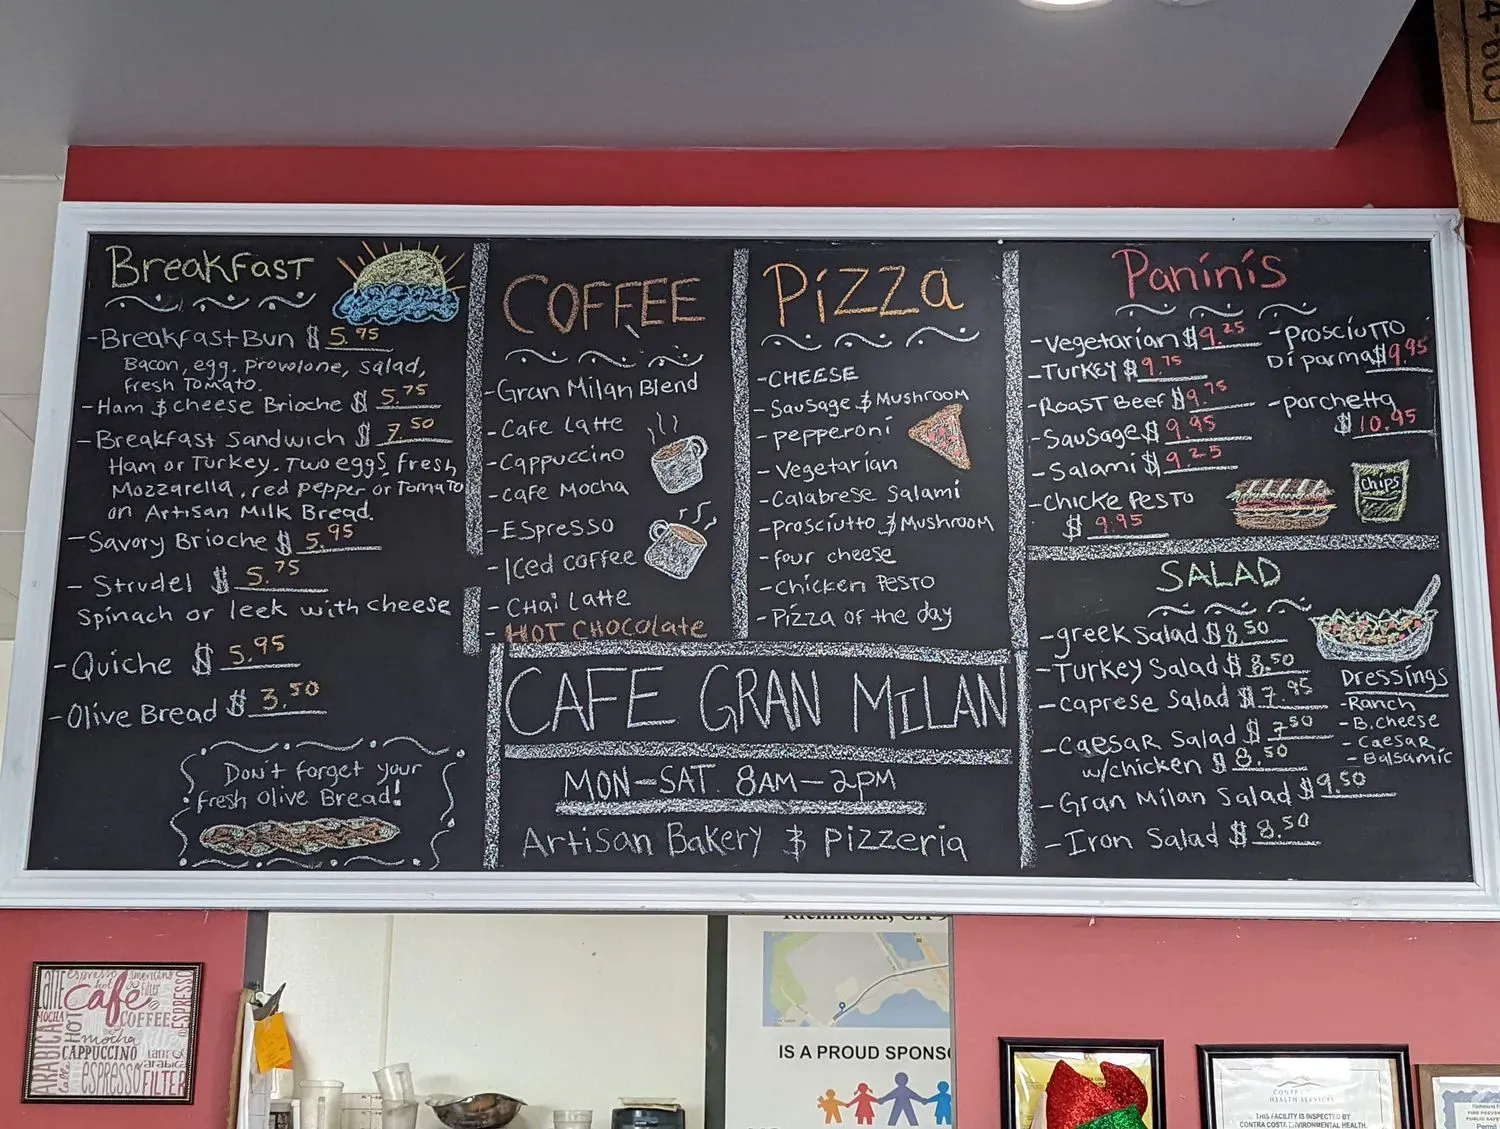 4-605
Breakfast
-Breakfast Bun $ 5.95
Bacon, egg, provolone, salad,
fresh Tomato.
-Ham & cheese Brioche $ 5.75
-Breakfast Sandwich $ 7.50
Ham or Turkey. Two eggs, fresh
Mozzarella, red pepper or Tomato
on Artisan Milk Bread.
-Savory Brioche $ 5.95
- Strudel $ 5.75
Spinach or leek with cheese
-Quiche $ 5.95
-Olive Bread $ 3.50
Don't forget your
fresh Olive Bread!
COFFEE
-Gran Milan Blend
-Cafe Latte
-Cappuccino
-cafe Mocha
-Espresso
-Iced coffee
-CHai Latte
- HOT CHOCOLATE
Pizza
-CHEESE
-Sausage & Mushroom
-pepperoni
-Vegetarian
-Calabrese Salami
-Prosciutto & Mushroom
-four cheese
-Chicken Pesto
-Pizza of the day
CAFE GRAN MILAN
MON-SAT. 8AM-2PM
Artisan Bakery & Pizzeria
Paninis
-Vegetarian $9.25
-Turkey $9.75
-Roast Beef $9.75
-Sausage $9.95
-Salami $9.25
-Chicke Pesto
$ 9.95
-Prosciutto
Di parma $9.95
-porchetta
$10.95
Chips
SALAD
-greek Salad $8.50
-Turkey Salad $8.50
-Caprese Salad $7.95
-Caesar Salad $7.50
w/chicken $8.50
-Gran Milan Salad $9.50
-Iron Salad $8.50
Dressings
-Ranch
-B.cheese
-Caesar
-Balsamic
Richmond, CA 9
IS A PROUD SPONSO
LATTE
espresso
americano
hot
Filter
Café
MOCHA
COFFEE
ESPRESSO
HOT
ARABICA
mocha
CAPPUCCINO
latte
arabica
ESPRESSO
FILTER
CONTRA COSTA
HEALTH SERVICES
THIS FACILITY IS INSPECTED BY
CONTRA COSTA ENVIRONMENTAL HEALTH.
Permit